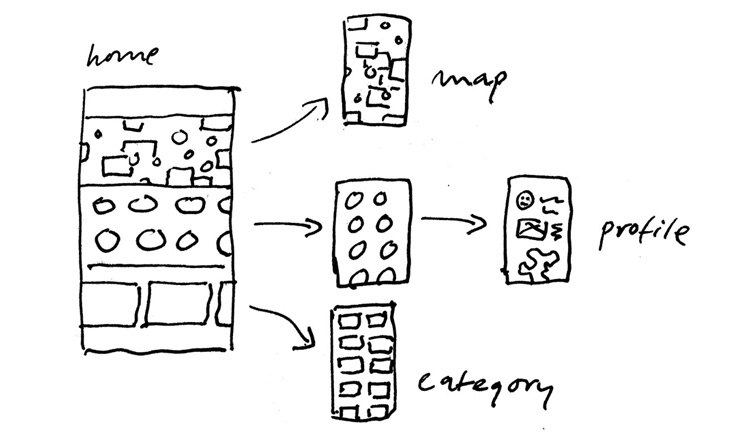 home
map
profile
category